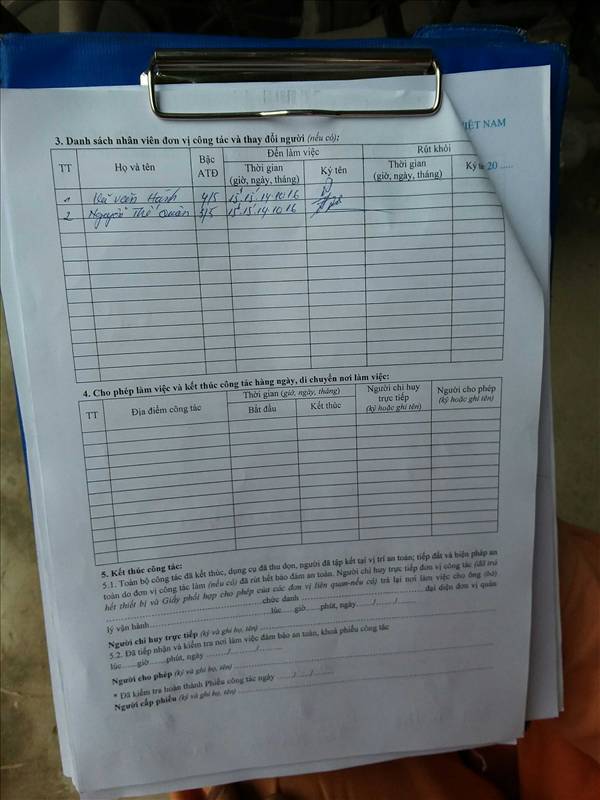 IỆT NAM
20 .....
3. Danh sách nhân viên đơn vị công tác và thay đổi người (nếu có):
TT Họ và tên Bậc ATĐ Đến làm việc Rút khỏi
Thời gian (giờ, ngày, tháng) Ký tên Thời gian (giờ, ngày, tháng) Ký
1 Văn Hạnh 4/5
2 Nguyễn Thế Quân 3/5
4. Cho phép làm việc và kết thúc công tác hàng ngày, di chuyển nơi làm việc:
TT Địa điểm công tác Thời gian (giờ, ngày, tháng) Người chỉ huy trực tiếp (ký hoặc ghi tên) Người cho phép (ký hoặc ghi tên)
Bắt đầu Kết thúc
5. Kết thúc công tác:
5.1. Toàn bộ công tác đã kết thúc, dụng cụ đã thu dọn, người đã tập kết tại vị trí an toàn; tiếp đất và biện pháp an
toàn do đơn vị công tác làm (nếu có) đã rút hết bảo đảm an toàn. Người chỉ huy trực tiếp đơn vị công tác (đã trả
hết thiết bị và Giấy phối hợp cho phép của các đơn vị liên quan-nếu có) trả lại nơi làm việc cho ông (bà)
................chức danh ................đại diện đơn vị quản
lý vận hành................lúc.....giờ.....phút, ngày....../....../......
Người chỉ huy trực tiếp (ký và ghi họ, tên) ................
5.2. Đã tiếp nhận và kiểm tra nơi làm việc đảm bảo an toàn, khoá phiếu công tác
lúc.....giờ.....phút, ngày ....../....../......
Người cho phép (ký và ghi họ, tên) ................
* Đã kiểm tra hoàn thành Phiếu công tác ngày ....../....../......
Người cấp phiếu (ký và ghi họ, tên) ................